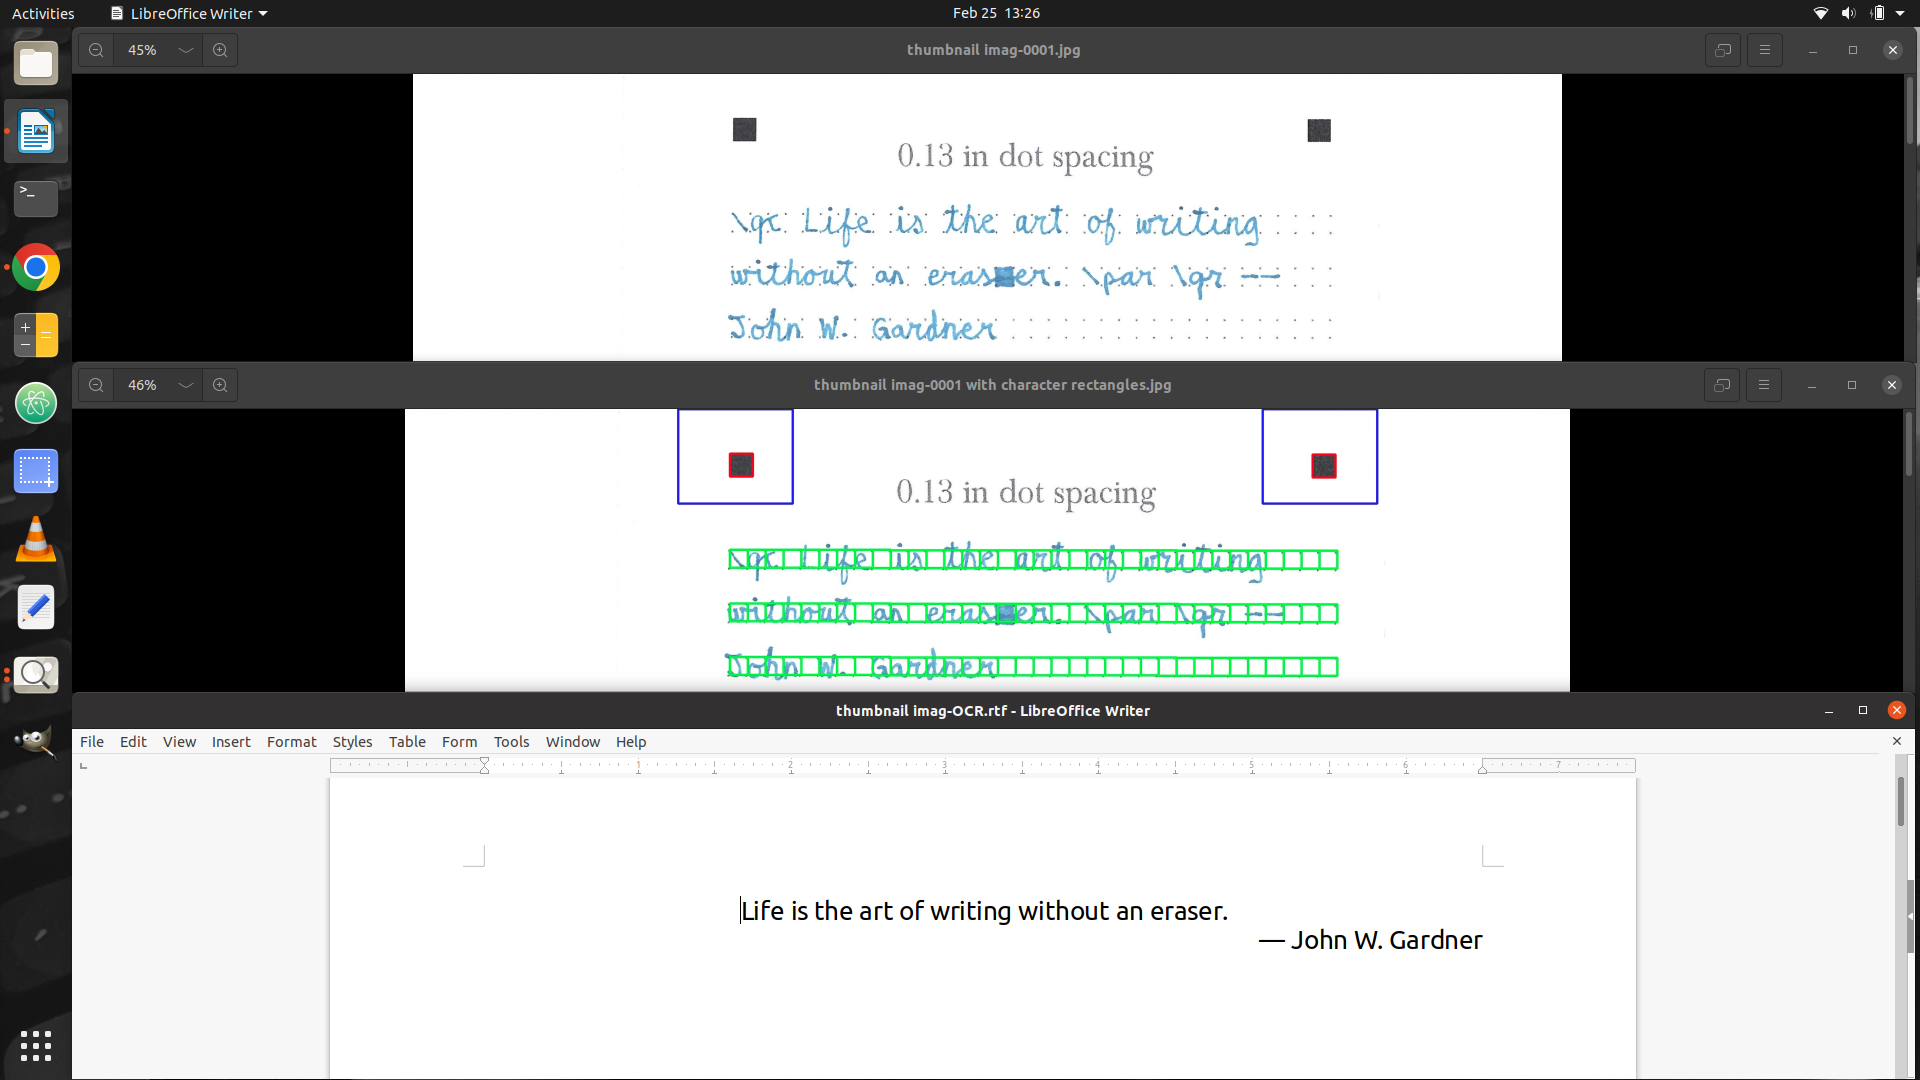 Activities LibreOffice Writer Feb 25 13:26
45% thumbnail imag-0001.jpg
0.13 in dot spacing
\qc Life is the art of writing
without an eraser. \par \qr --
John W. Gardner
46% thumbnail imag-0001 with character rectangles.jpg
0.13 in dot spacing
\qc Life is the art of writing
without an eraser. \par \qr --
John W. Gardner
thumbnail imag-OCR.rtf - LibreOffice Writer
File Edit View Insert Format Styles Table Form Tools Window Help
1 2 3 4 5 6 7
Life is the art of writing without an eraser.
— John W. Gardner